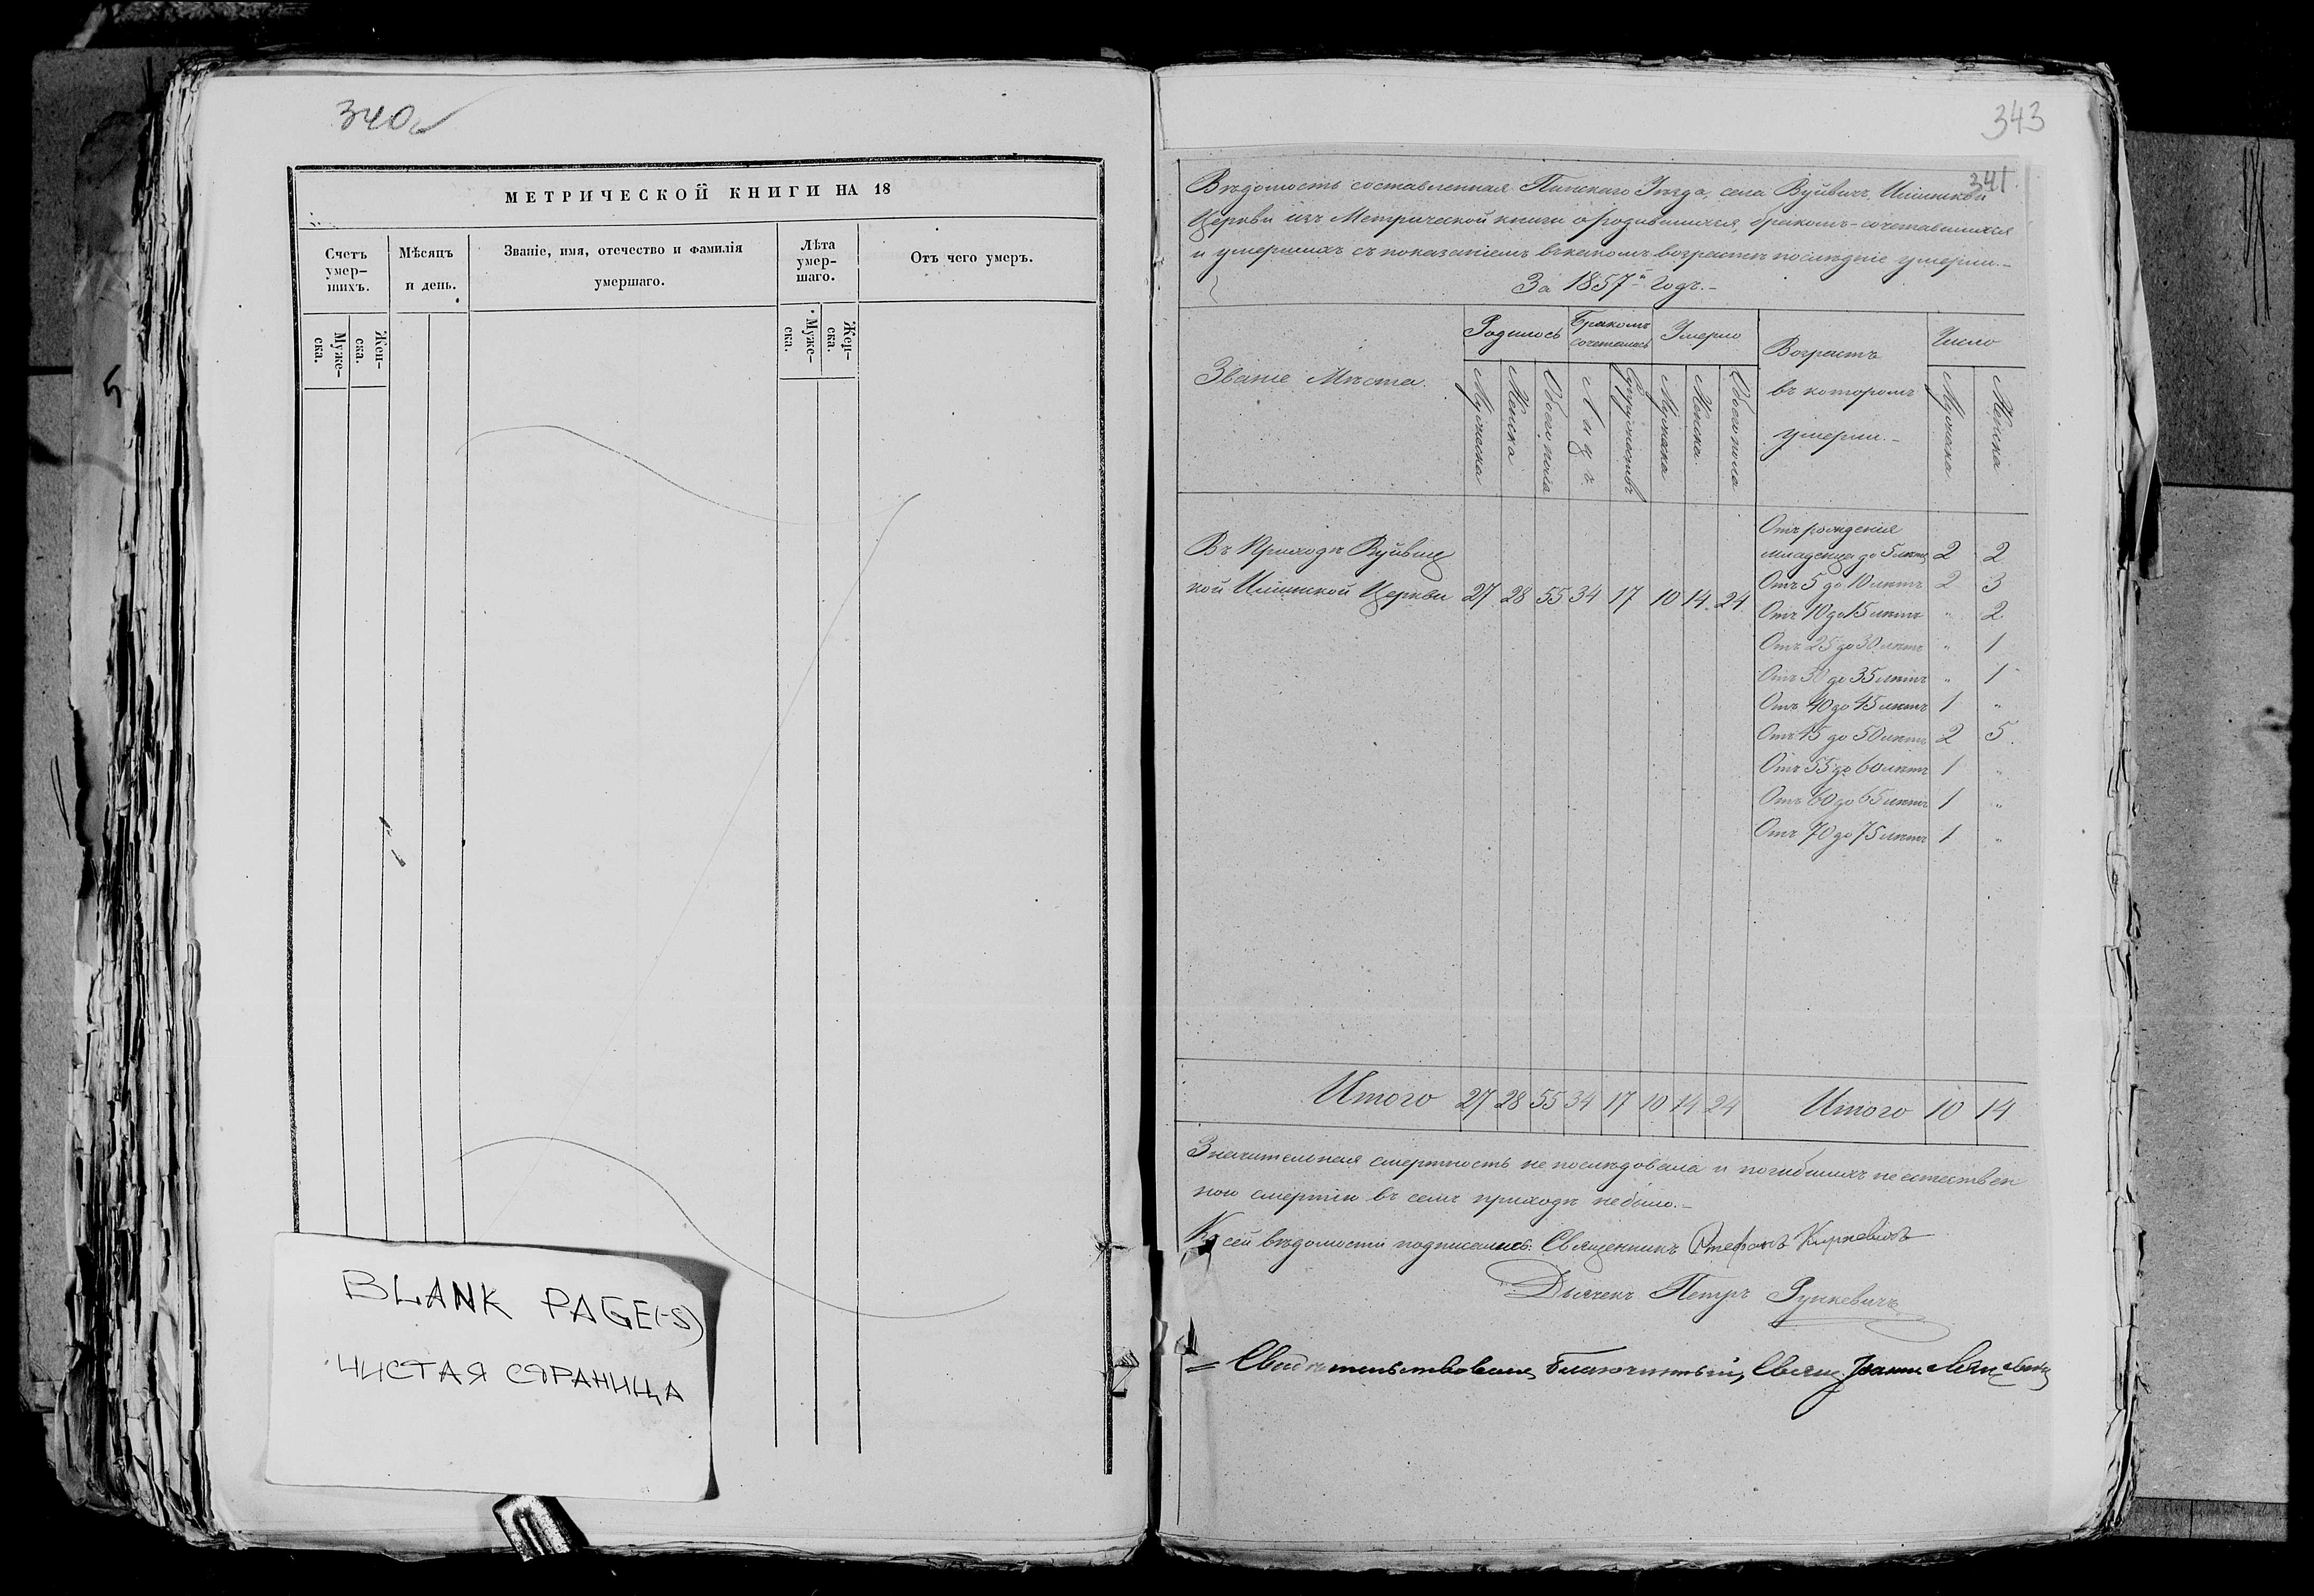 340
МЕТРИЧЕСКОЙ КНИГИ НА 18
Счетъ умер-шихъ.
Мѣсяцъ и день.
Званіе, имя, отечество и фамилія умершаго.
Лѣта умер-шаго.
Отъ чего умеръ.
Муже-ска.
Жен-ска.
Муже-ска.
Жен-ска.
BLANK PAGE(-S)
ЧИСТАЯ СТРАНИЦА
343
341
Вѣдомость составленная Пинскаго Уѣзда, села Вуйвичъ, Ильинской
Церкви изъ Метрической книги о родившихся, бракомъ-сочетавшихся
и умершихъ съ показаніемъ въ какомъ возрастѣ послѣдніе умерли.-
За 1857й Годъ.-
Званіе Мѣста.
Родилось
Бракомъ сочеталось
Умерло
Возрастъ
въ которомъ
умерли.-
Число
Мужеска
Женска
Обоего пола
Лицъ
Супружествъ
Мужеска
Женска
Обоего пола
Мужеска
Женска
Въ Приходѣ Вуйвиц
кой Ильинской Церкви 27 28 55 34 17 10 14 24
Отъ рожденія
младенца до 5 лѣтъ 2 2
Отъ 5 до 10 лѣтъ 2 3
Отъ 10 до 15 лѣтъ " 2
Отъ 25 до 30 лѣтъ " 1
Отъ 30 до 35 лѣтъ " 1
Отъ 40 до 45 лѣтъ 1 "
Отъ 45 до 50 лѣтъ 2 5
Отъ 55 до 60 лѣтъ 1 "
Отъ 60 до 65 лѣтъ 1 "
Отъ 70 до 75 лѣтъ 1 "
Итого 27 28 55 34 17 10 14 24 Итого 10 14
Значительная смертность не послѣдовала и погибшихъ неестествен
ною смертію въ семъ приходѣ небыло.-
Къ сей вѣдомости подписались: Священникъ Стефанъ Киркевичъ
Дьячекъ Петръ Рункевичъ
= Свидѣтельствовалъ Благочинный, Свящ. Іоаннъ